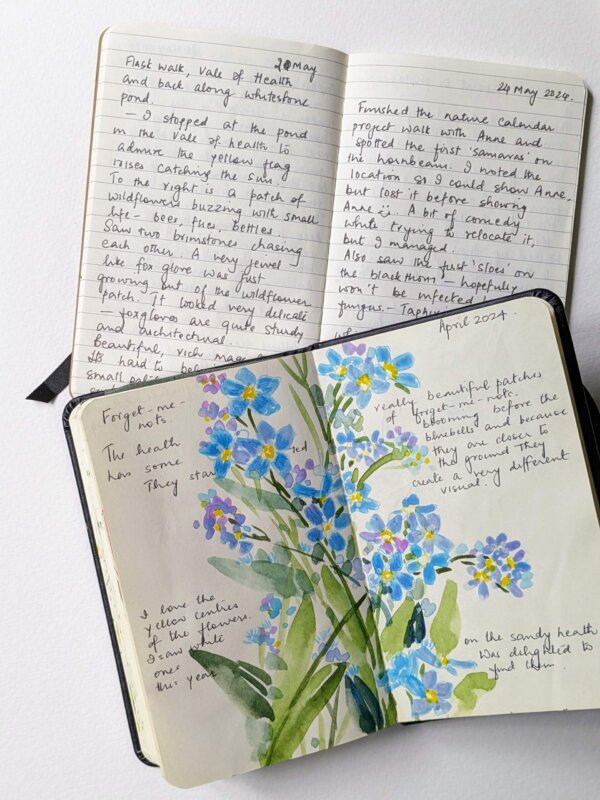 20 May
Flast walk, Vale of Health
and back along whitestone
pond.
– I stopped at the pond
in the Vale of health to
admire the yellow flag
irises catching the sun.
To the right is a patch of
wildflowers buzzing with small
life – bees, flies, bettles.
Saw two brimstones chasing
each other. A very jewel
like fox glove was just
growing out of the wildflower
patch. It looked very delicate
– foxgloves are quite sturdy
and architectural.
Beautiful, rich
Its hard to
small
24 May 2024.
Finished the nature calendar
project walk with Anne and
spotted the first 'samaras' on
the hornbeam. I noted the
location so I could show Anne,
but lost it before showing
Anne. A bit of comedy
while trying to relocate it,
but I managed.
Also saw the first 'sloes' on
the blackthorn – hopefully
won't be infected
fungus. –
Forget-me-
nots.
The heath
has some
They star ted
April 2024.
really beautiful patches
of forget-me-nots.
blooming before the
bluebells and because
they are closer to
the ground they
create a very different
visual.
I love the
yellow centres
of the flowers.
I saw white
ones
this year
on the sandy heath
was delighted to
find them.